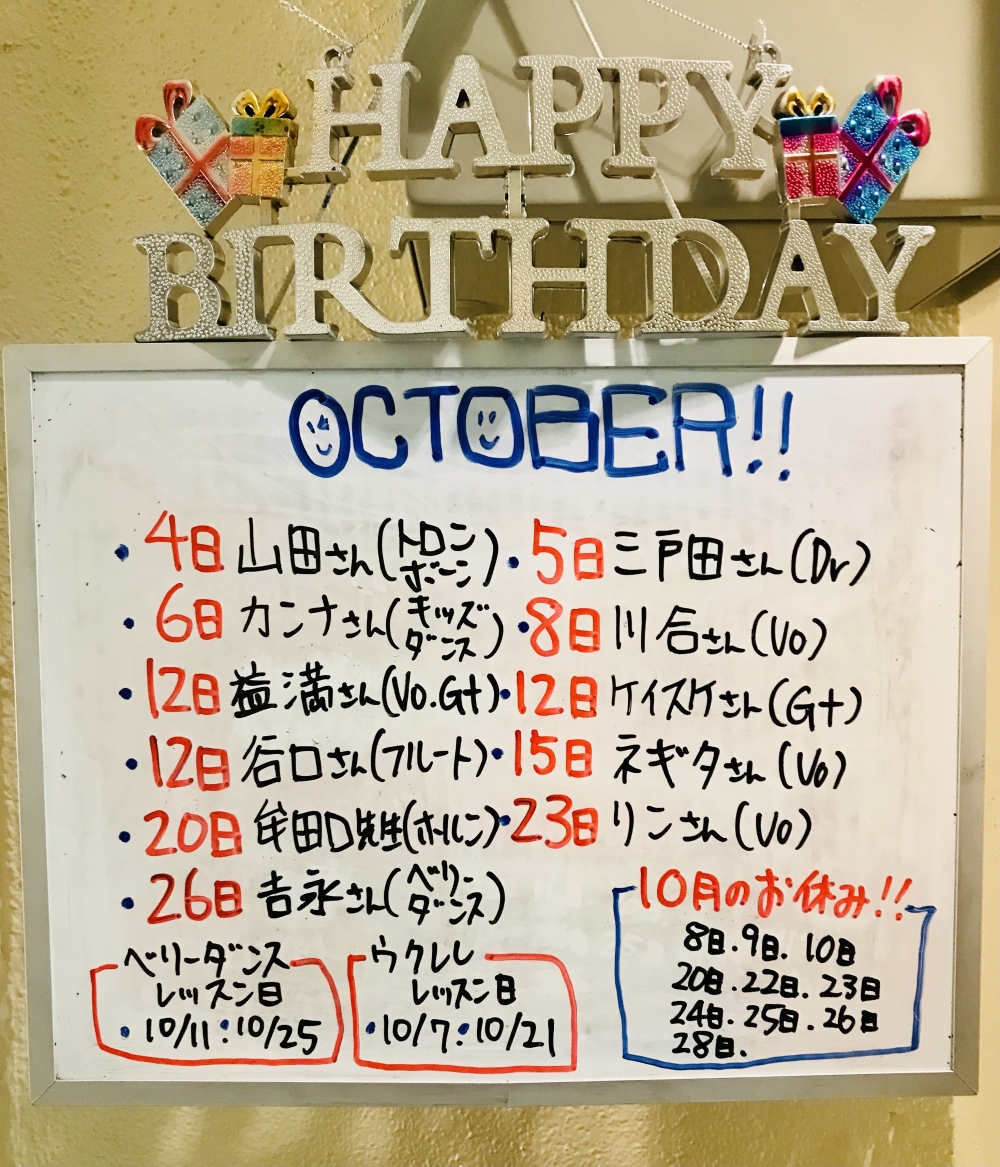 HAPPY
BIRTHDAY
OCTOBER!!
・4日 山田さん(トロンボーン)・5日 三戸田さん(Dr)
・6日 カンナさん(キッズダンス)・8日 川合さん(Vo)
・12日 益満さん(Vo.Gt)・12日 ケイスケさん(Gt)
・12日 谷口さん(フルート)・15日 ネギタさん(Vo)
・20日 牟田口先生(ホルン)・23日 リンさん(Vo)
・26日 吉永さん(ベリーダンス)
10月のお休み!!
8日.9日.10日
20日.22日.23日
24日.25日.26日
28日.
ベリーダンス
レッスン日
・10/11・10/25
ウクレレ
レッスン日
・10/7・10/21